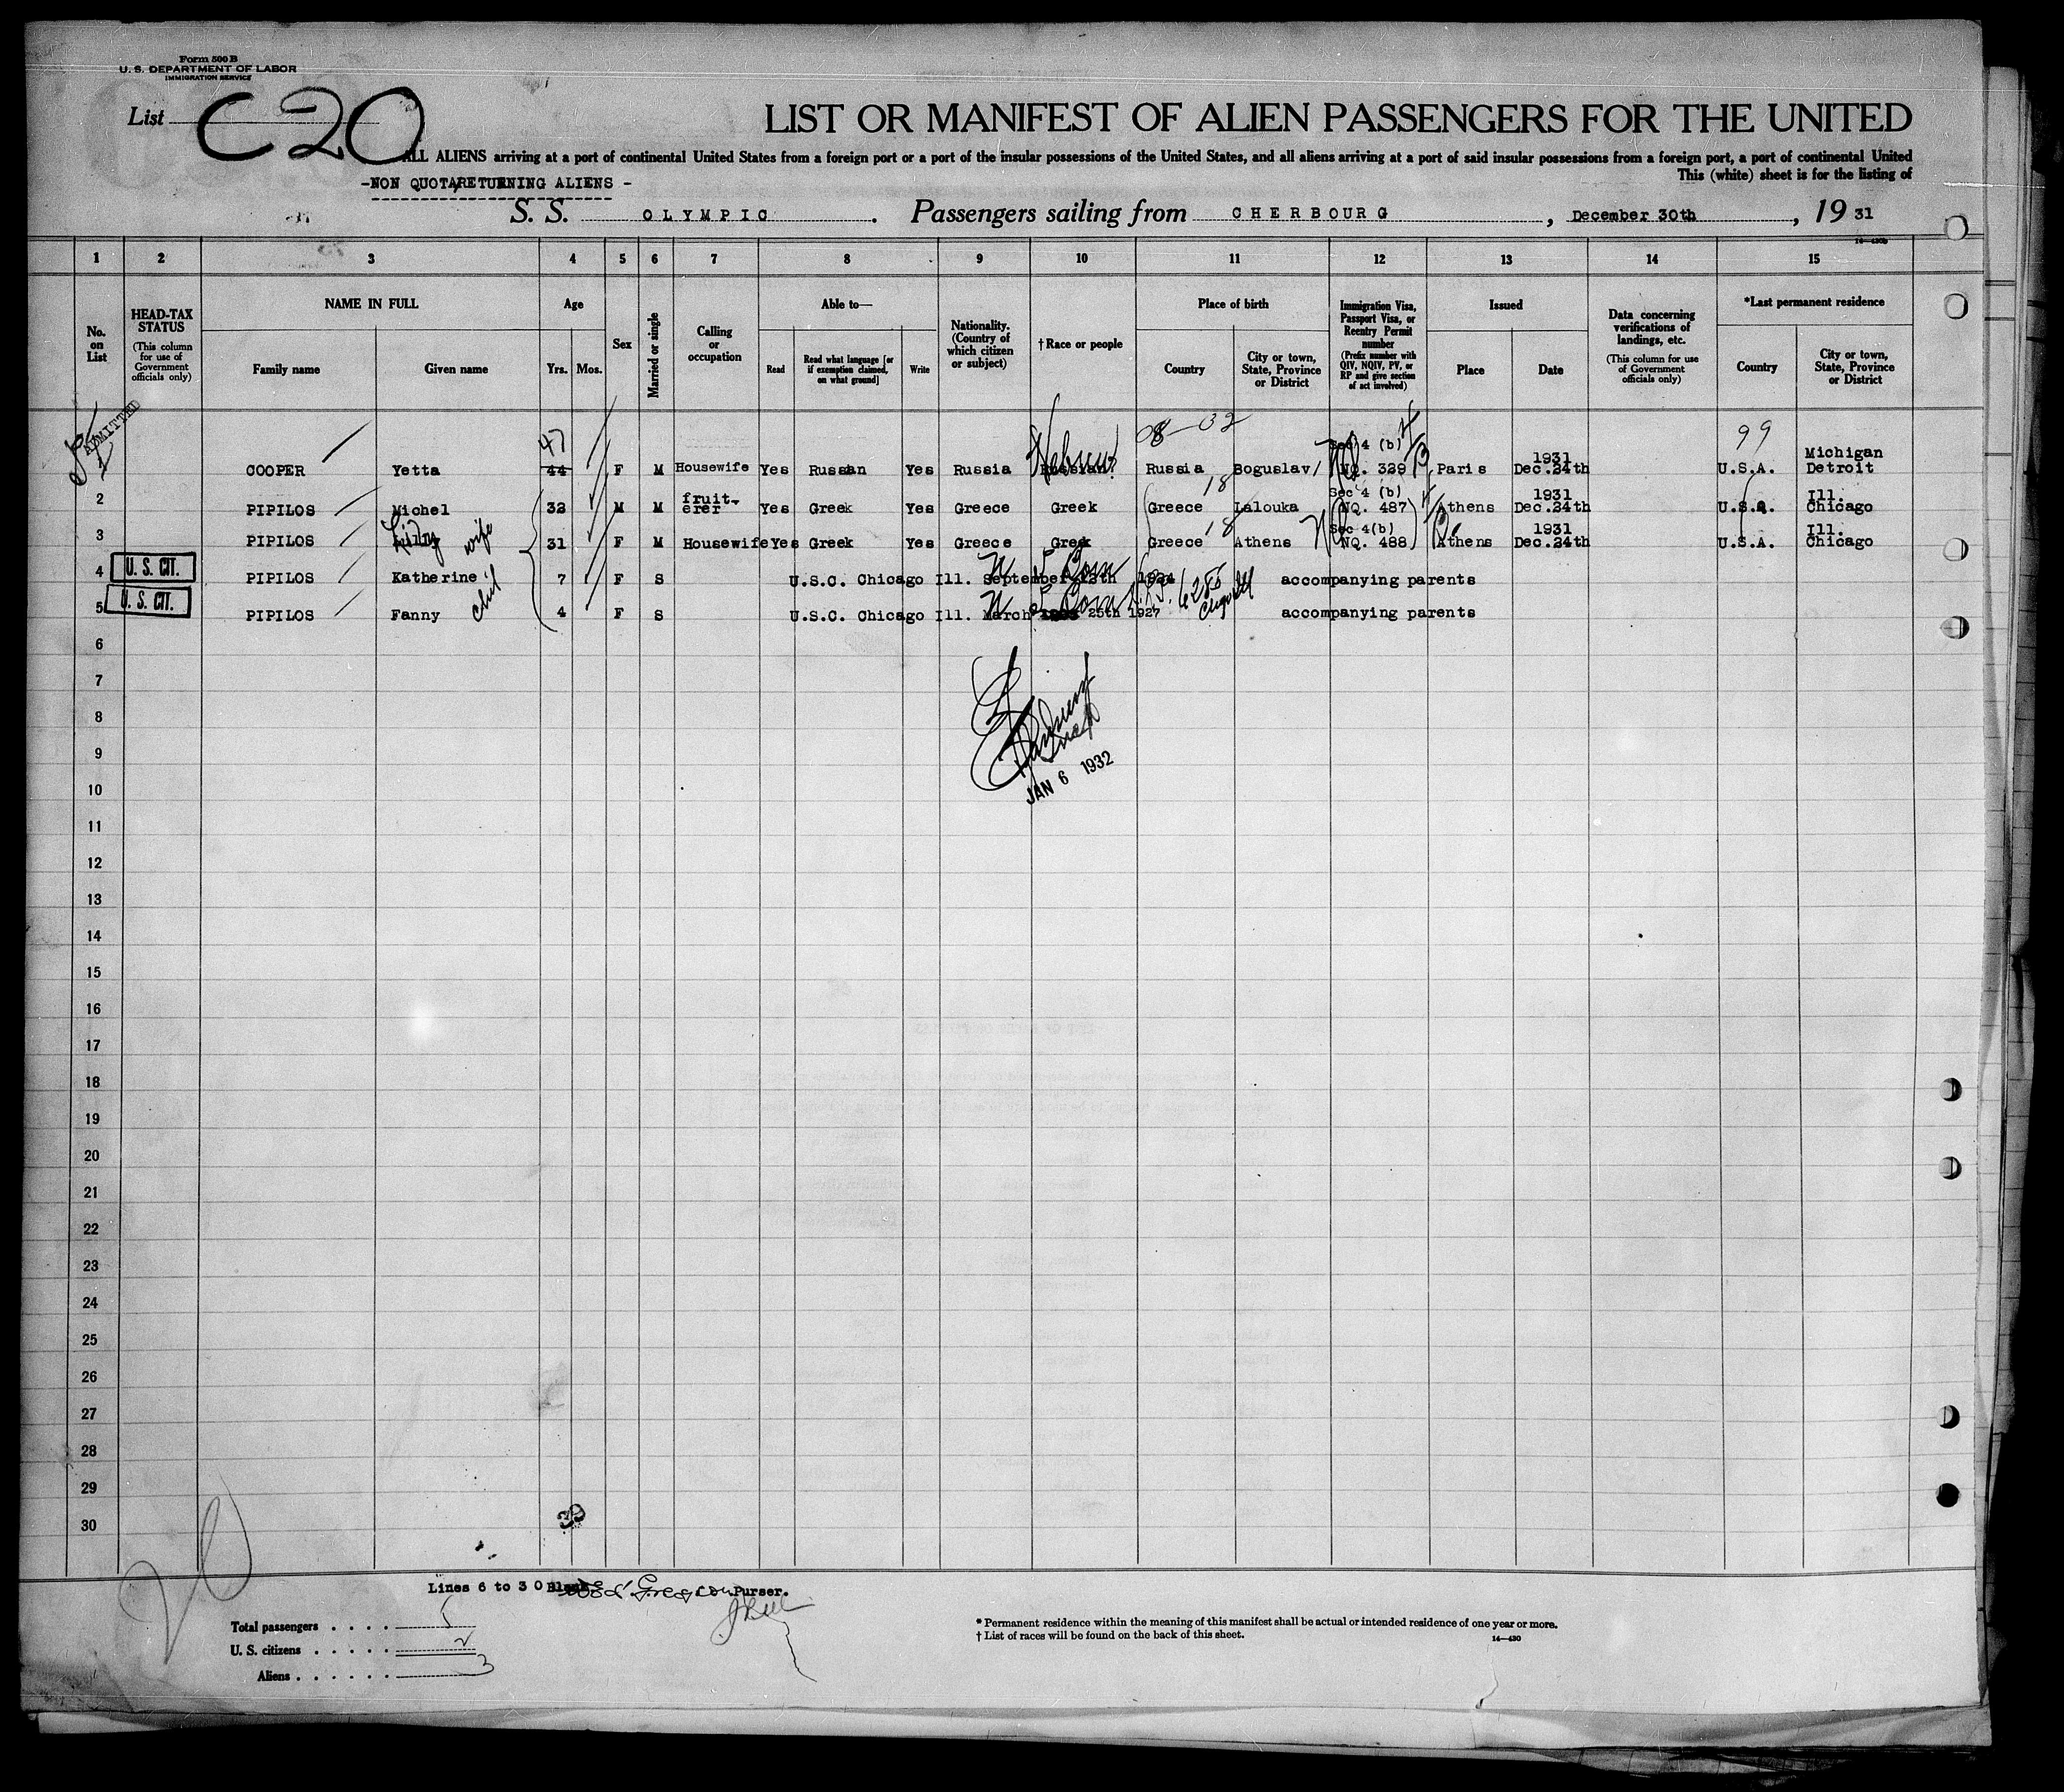 Form 500 B
U. S. DEPARTMENT OF LABOR
IMMIGRATION SERVICE
List C20
LIST OR MANIFEST OF ALIEN PASSENGERS FOR THE UNITED
ALL ALIENS arriving at a port of continental United States from a foreign port or a port of the insular possessions of the United States, and all aliens arriving at a port of said insular possessions from a foreign port, a port of continental United
This (white) sheet is for the listing of
-NON QUOTA/RETURNING ALIENS -
S. S. OLYMPIC. Passengers sailing from CHERBOURG, December 30th, 19 31
1 2 3 4 5 6 7 8 9 10 11 12 13 14 15
No. on List
HEAD-TAX STATUS (This column for use of Government officials only)
NAME IN FULL
Family name Given name
Age
Yrs. Mos.
Sex
Married or single
Calling or occupation
Able to—
Read
Read what language [or if exemption claimed, on what ground]
Write
Nationality. (Country of which citizen or subject)
†Race or people
Place of birth
Country
City or town, State, Province or District
Immigration Visa, Passport Visa, or Reentry Permit number (Prefix number with QIV, NQIV, PV, or RP and give section of act involved)
Issued
Place Date
Data concerning verifications of landings, etc. (This column for use of Government officials only)
*Last permanent residence
Country
City or town, State, Province or District
ADMITTED
47 Hebrew 08-02 Sec 4 (b) 99
1 COOPER Yetta 44 F M Housewife Yes Russan Yes Russia Russian Russia Boguslav NQ. 329 Paris 1931 Dec.24th U.S.A. Michigan Detroit
2 PIPILOS Michel 32 M M fruit-erer Yes Greek Yes Greece Greek Greece 18 Lalouka Sec 4 (b) NQ. 487 Athens 1931 Dec.24th U.S.A. Ill. Chicago
3 PIPILOS wife 31 F M Housewife Yes Greek Yes Greece Greek Greece 18 Athens Sec 4(b) NQ. 488 Athens 1931 Dec.24th U.S.A. Ill. Chicago
4 U. S. CIT. PIPILOS Katherine 7 F S U.S.C. Chicago Ill. September 13th 1924 accompanying parents
5 U. S. CIT. PIPILOS Fanny 4 F S U.S.C. Chicago Ill. March 25th 1927 accompanying parents
6
7
8
9
JAN 6 1932
10
11
12
13
14
15
16
17
18
19
20
21
22
23
24
25
26
27
28
29
30
Lines 6 to 30 Blank Purser.
Total passengers . . . . 5
U. S. citizens . . . . . 2
Aliens . . . . . . 3
* Permanent residence within the meaning of this manifest shall be actual or intended residence of one year or more.
† List of races will be found on the back of this sheet.
14—430